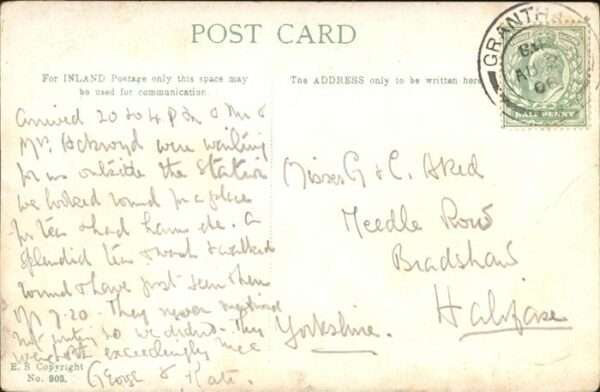 POST CARD
For INLAND Postage only this space may
be used for communication.
The ADDRESS only to be written here
GRANTH
AU
06
HALF PENNY
Arrived 20 to 4 P.M. Mr &
Mrs. Ackroyd were waiting
for us outside the Station
we looked round for a place
for tea & had ham etc. A
splendid tea & wash & walked
round & have just seen them
off 7.20. They never mentioned
not writing so we didn't. They
were both exceedingly nice
George & Kate.
Misses G & C. Aked
Needle Row
Bradshaw
Halifax
Yorkshire.
E. S Copyright
No. 903.